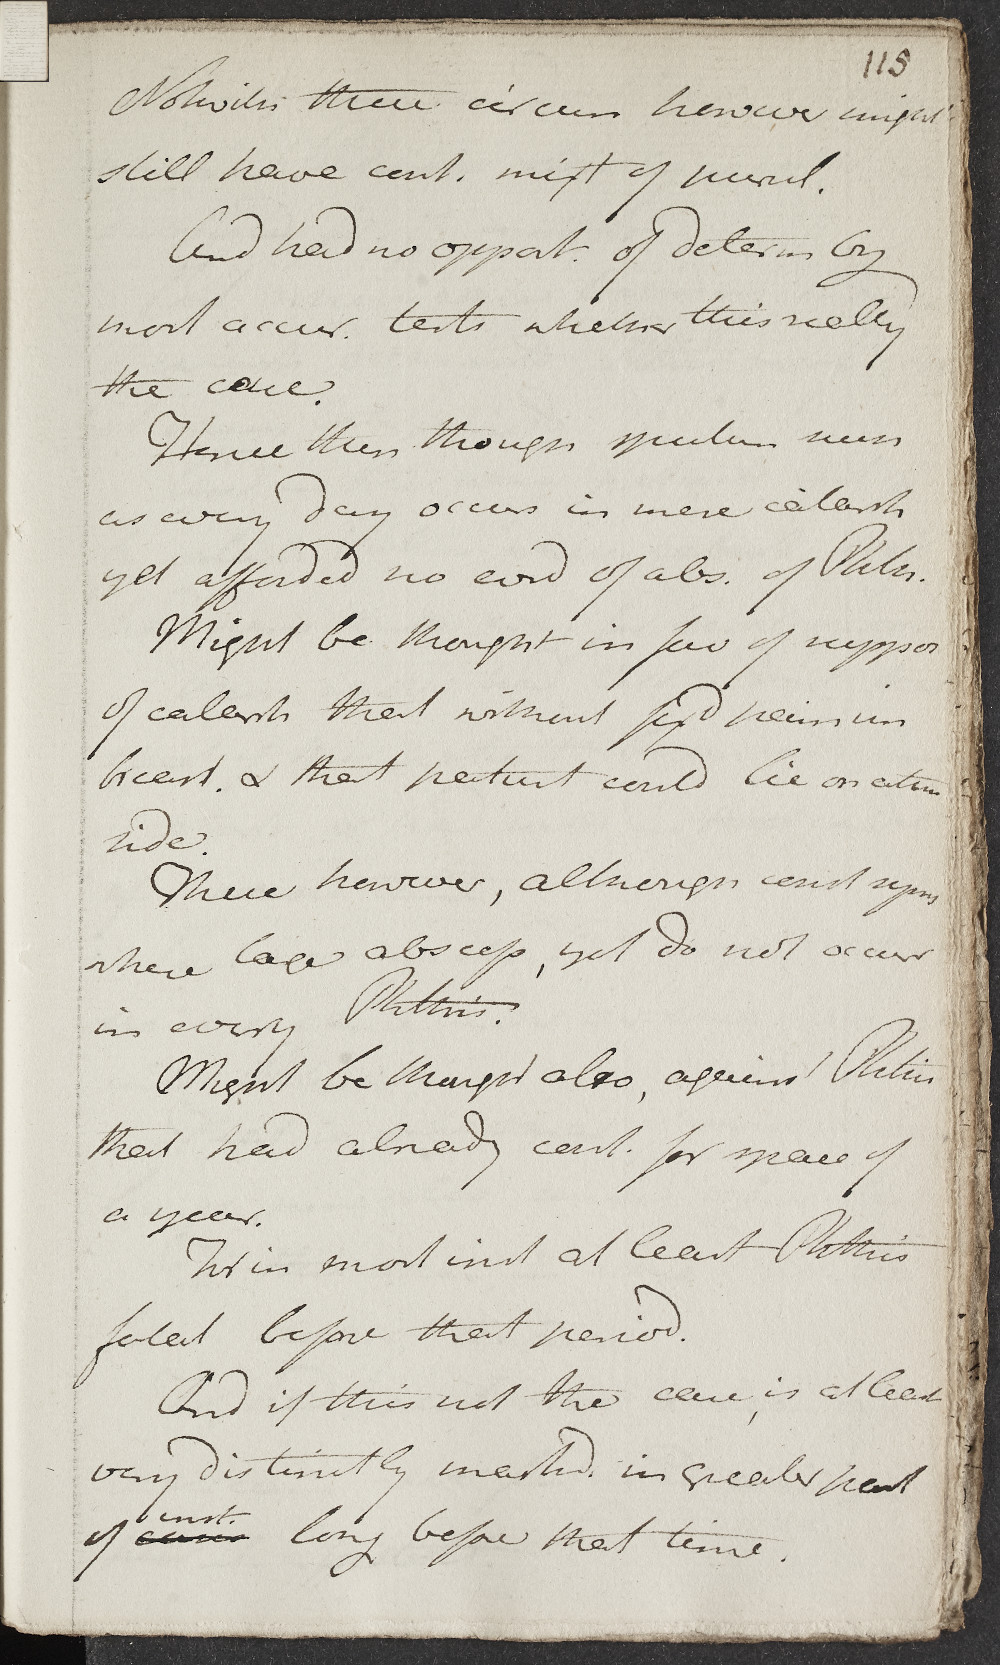 115
Notwith these circum however might
still have cont. mixt of purul.
And had no opport. of determ by
most accur. tests whether this really
the case.
Hence then though sputum seen
as every day occurs in mere catarrh
yet afforded no evid of abs. of Phthis.
Might be thought in fav of suppos
of catarrh that without fixd pain in
breast. & that patient could lie on either
side.
These however, although const symp
where large abscess, yet do not occur
in every Phthisis.
Might be thought also, against Phthisis
that had already cont. for space of
a year.
For in most inst at least Phthisis
fatal before that period.
And if this not the case, is at least
very distinctly markd. in greater part
inst.
of cases long before that time.